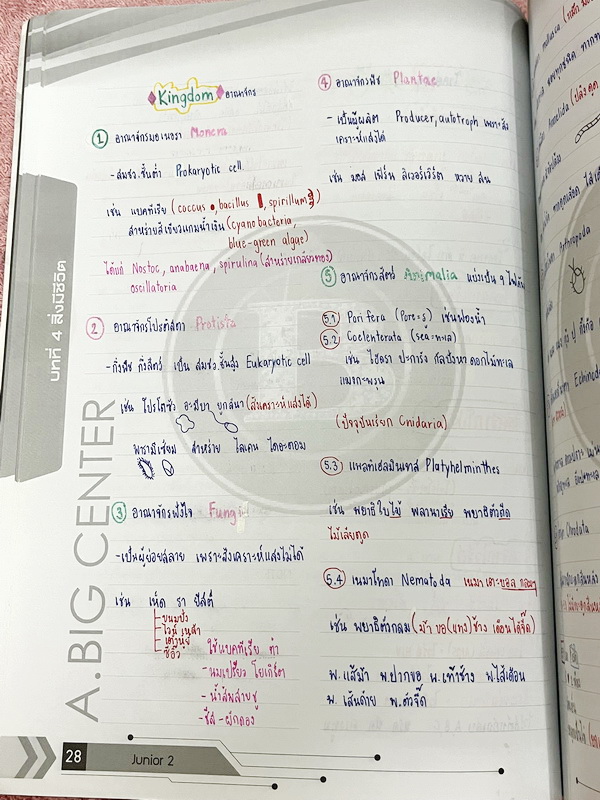 Kingdom อาณาจักร
① อาณาจักรมอเนอรา Monera
-สมชว.ชั้นต่ำ Prokaryotic cell
เช่น แบคทีเรีย (coccus, bacillus, spirillum)
สาหร่ายสีเขียวแกมน้ำเงิน (cyanobacteria
blue-green algae)
ได้แก่ Nostoc, anabaena, spirulina (สาหร่ายเกลียวทอง)
oscillatoria
② อาณาจักรโปรติสตา Protista
-กึ่งพืช กึ่งสัตว์ เป็น สมชว.ชั้นสูง Eukaryotic cell
เช่น โปรโตซัว อะมีบา ยูกลีนา (สังเคราะห์แสงได้)
พารามีเซียม สาหร่าย ไลเคน ไดอะตอม
③ อาณาจักรฟังไจ Fungi
-เป็นผู้ย่อยสลาย เพราะสังเคราะห์แสงไม่ได้
เช่น เห็ด รา ยีสต์
ขนมปัง
ไวน์ เหล้า
เต้าหู้ยี้
ซีอิ๊ว
ใช้แบคทีเรีย ทำ
-นมเปรี้ยว โยเกิร์ต
-น้ำส้มสายชู
-ชีส -ผักดอง
④ อาณาจักรพืช Plantae
- เป็นผู้ผลิต Producer, autotroph เพราะสัง
เคราะห์แสงได้
เช่น มอส เฟิร์น ลิเวอร์เวิร์ต หวาย สน
⑤ อาณาจักรสัตว์ Animalia แบ่งเป็น 9 ไฟลัม
5.1 Porifera (Pore=รู) เช่นฟองน้ำ
5.2 Coelenterata (sea=ทะเล)
เช่น ไฮดรา ปะการัง กัลปังหา ดอกไม้ทะเล
แมงกะพรุน
(ปัจจุบันเรียก Cnidaria)
5.3 แพลทีเฮลมินเทส Platyhelminthes
เช่น พยาธิใบไม้ พลานาเรีย พยาธิตัวตืด
5.4 เนมาโทดา Nematoda
เช่น พยาธิตัวกลม
พ.แส้ม้า พ.ปากขอ พ.เท้าช้าง พ.ไส้เดือน
พ. เส้นด้าย พ.ตัวจี๊ด
บทที่ 4 สิ่งมีชีวิต
A.BIG CENTER
28 Junior 2
Annelida
Arthropoda
Chordata